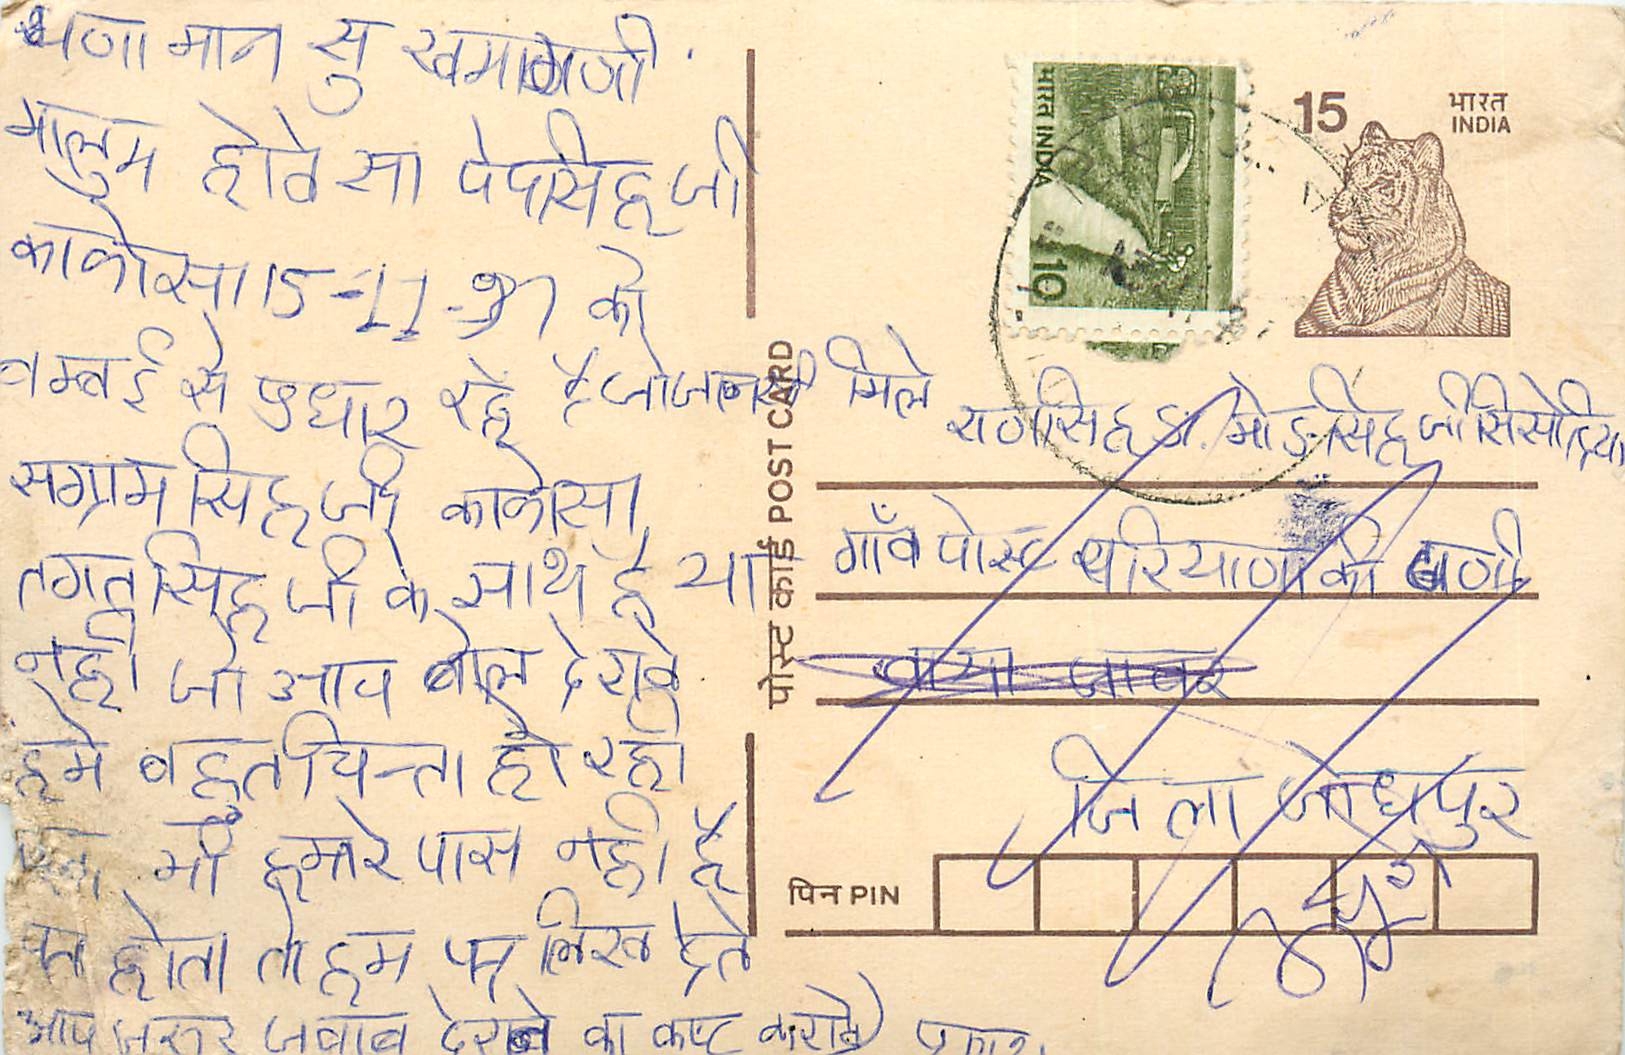 घणा मान सु खमागणी
मालुम होवे सा पेपसिह जी
काकोसा 15-11-97 को
बम्बई से पुधार रहे है जो जानसी मिले
सग्राम सिह जी काकोसा
तगतसिह जी के साथ है या
नही जो आप बोल देरावे
हमे बहुत चिन्ता हो रही
भी हमारे पास नही है
होता तो हम पत्र लिख देते
आप जरुर जवाब देरावे का कष्ट करावे
भारत INDIA
10
15
भारत
INDIA
पोस्ट कार्ड POST CARD
मोडसिह जी सिसोदिया
गाँव पोस्ट घरियाणा की ढाणी
वाया
जिला जोधपुर
पिन PIN